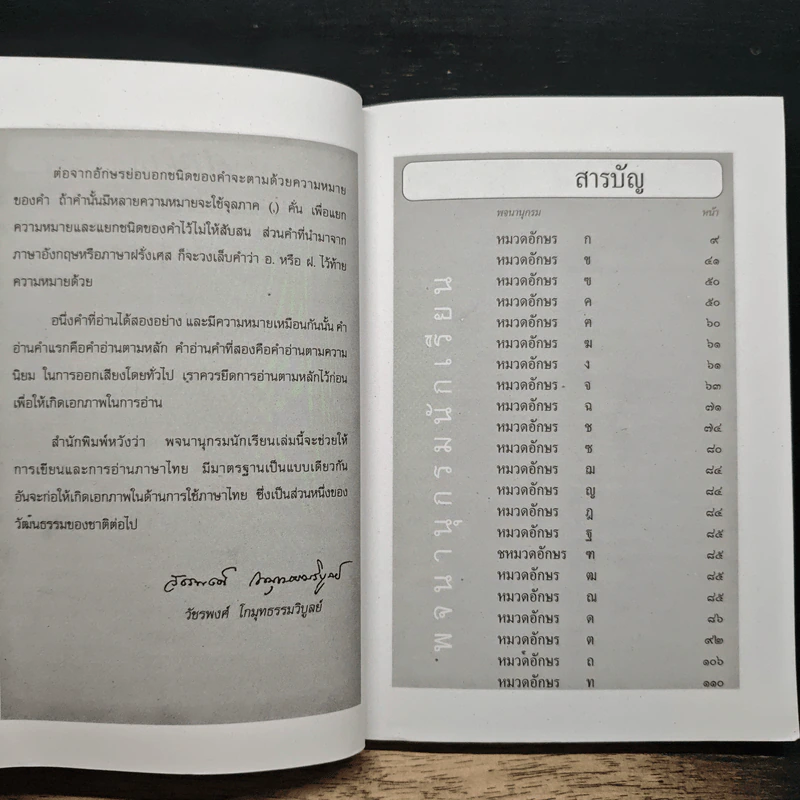 ต่อจากอักษรย่อบอกชนิดของคำจะตามด้วยความหมาย
ของคำ ถ้าคำนั้นมีหลายความหมายจะใช้จุลภาค (,) คั่น เพื่อแยก
ความหมายและแยกชนิดของคำไว้ไม่ให้สับสน ส่วนคำที่นำมาจาก
ภาษาอังกฤษหรือภาษาฝรั่งเศส ก็จะวงเล็บคำว่า อ. หรือ ฝ. ไว้ท้าย
ความหมายด้วย
อนึ่งคำที่อ่านได้สองอย่าง และมีความหมายเหมือนกันนั้น คำ
อ่านคำแรกคือคำอ่านตามหลัก คำอ่านคำที่สองคือคำอ่านตามความ
นิยม ในการออกเสียงโดยทั่วไป เราควรยึดการอ่านตามหลักไว้ก่อน
เพื่อให้เกิดเอกภาพในการอ่าน
สำนักพิมพ์หวังว่า พจนานุกรมนักเรียนเล่มนี้จะช่วยให้
การเขียนและการอ่านภาษาไทย มีมาตรฐานเป็นแบบเดียวกัน
อันจะก่อให้เกิดเอกภาพในด้านการใช้ภาษาไทย ซึ่งเป็นส่วนหนึ่งของ
วัฒนธรรมของชาติต่อไป
วัชรพงศ์ โกมุทธรรมวิบูลย์
สารบัญ
พจนานุกรม หน้า
หมวดอักษร ก ๙
หมวดอักษร ข ๔๑
หมวดอักษร ฃ ๕๐
หมวดอักษร ค ๕๐
หมวดอักษร ฅ ๖๐
หมวดอักษร ฆ ๖๑
หมวดอักษร ง ๖๑
หมวดอักษร จ ๖๓
หมวดอักษร ฉ ๗๑
หมวดอักษร ช ๗๔
หมวดอักษร ซ ๘๐
หมวดอักษร ฌ ๘๔
หมวดอักษร ญ ๘๔
หมวดอักษร ฎ ๘๔
หมวดอักษร ฐ ๘๕
ชหมวดอักษร ฑ ๘๕
หมวดอักษร ฒ ๘๕
หมวดอักษร ณ ๘๕
หมวดอักษร ด ๘๖
หมวดอักษร ต ๙๒
หมวดอักษร ถ ๑๐๖
หมวดอักษร ท ๑๑๐
พจนานุกรมนักเรียน